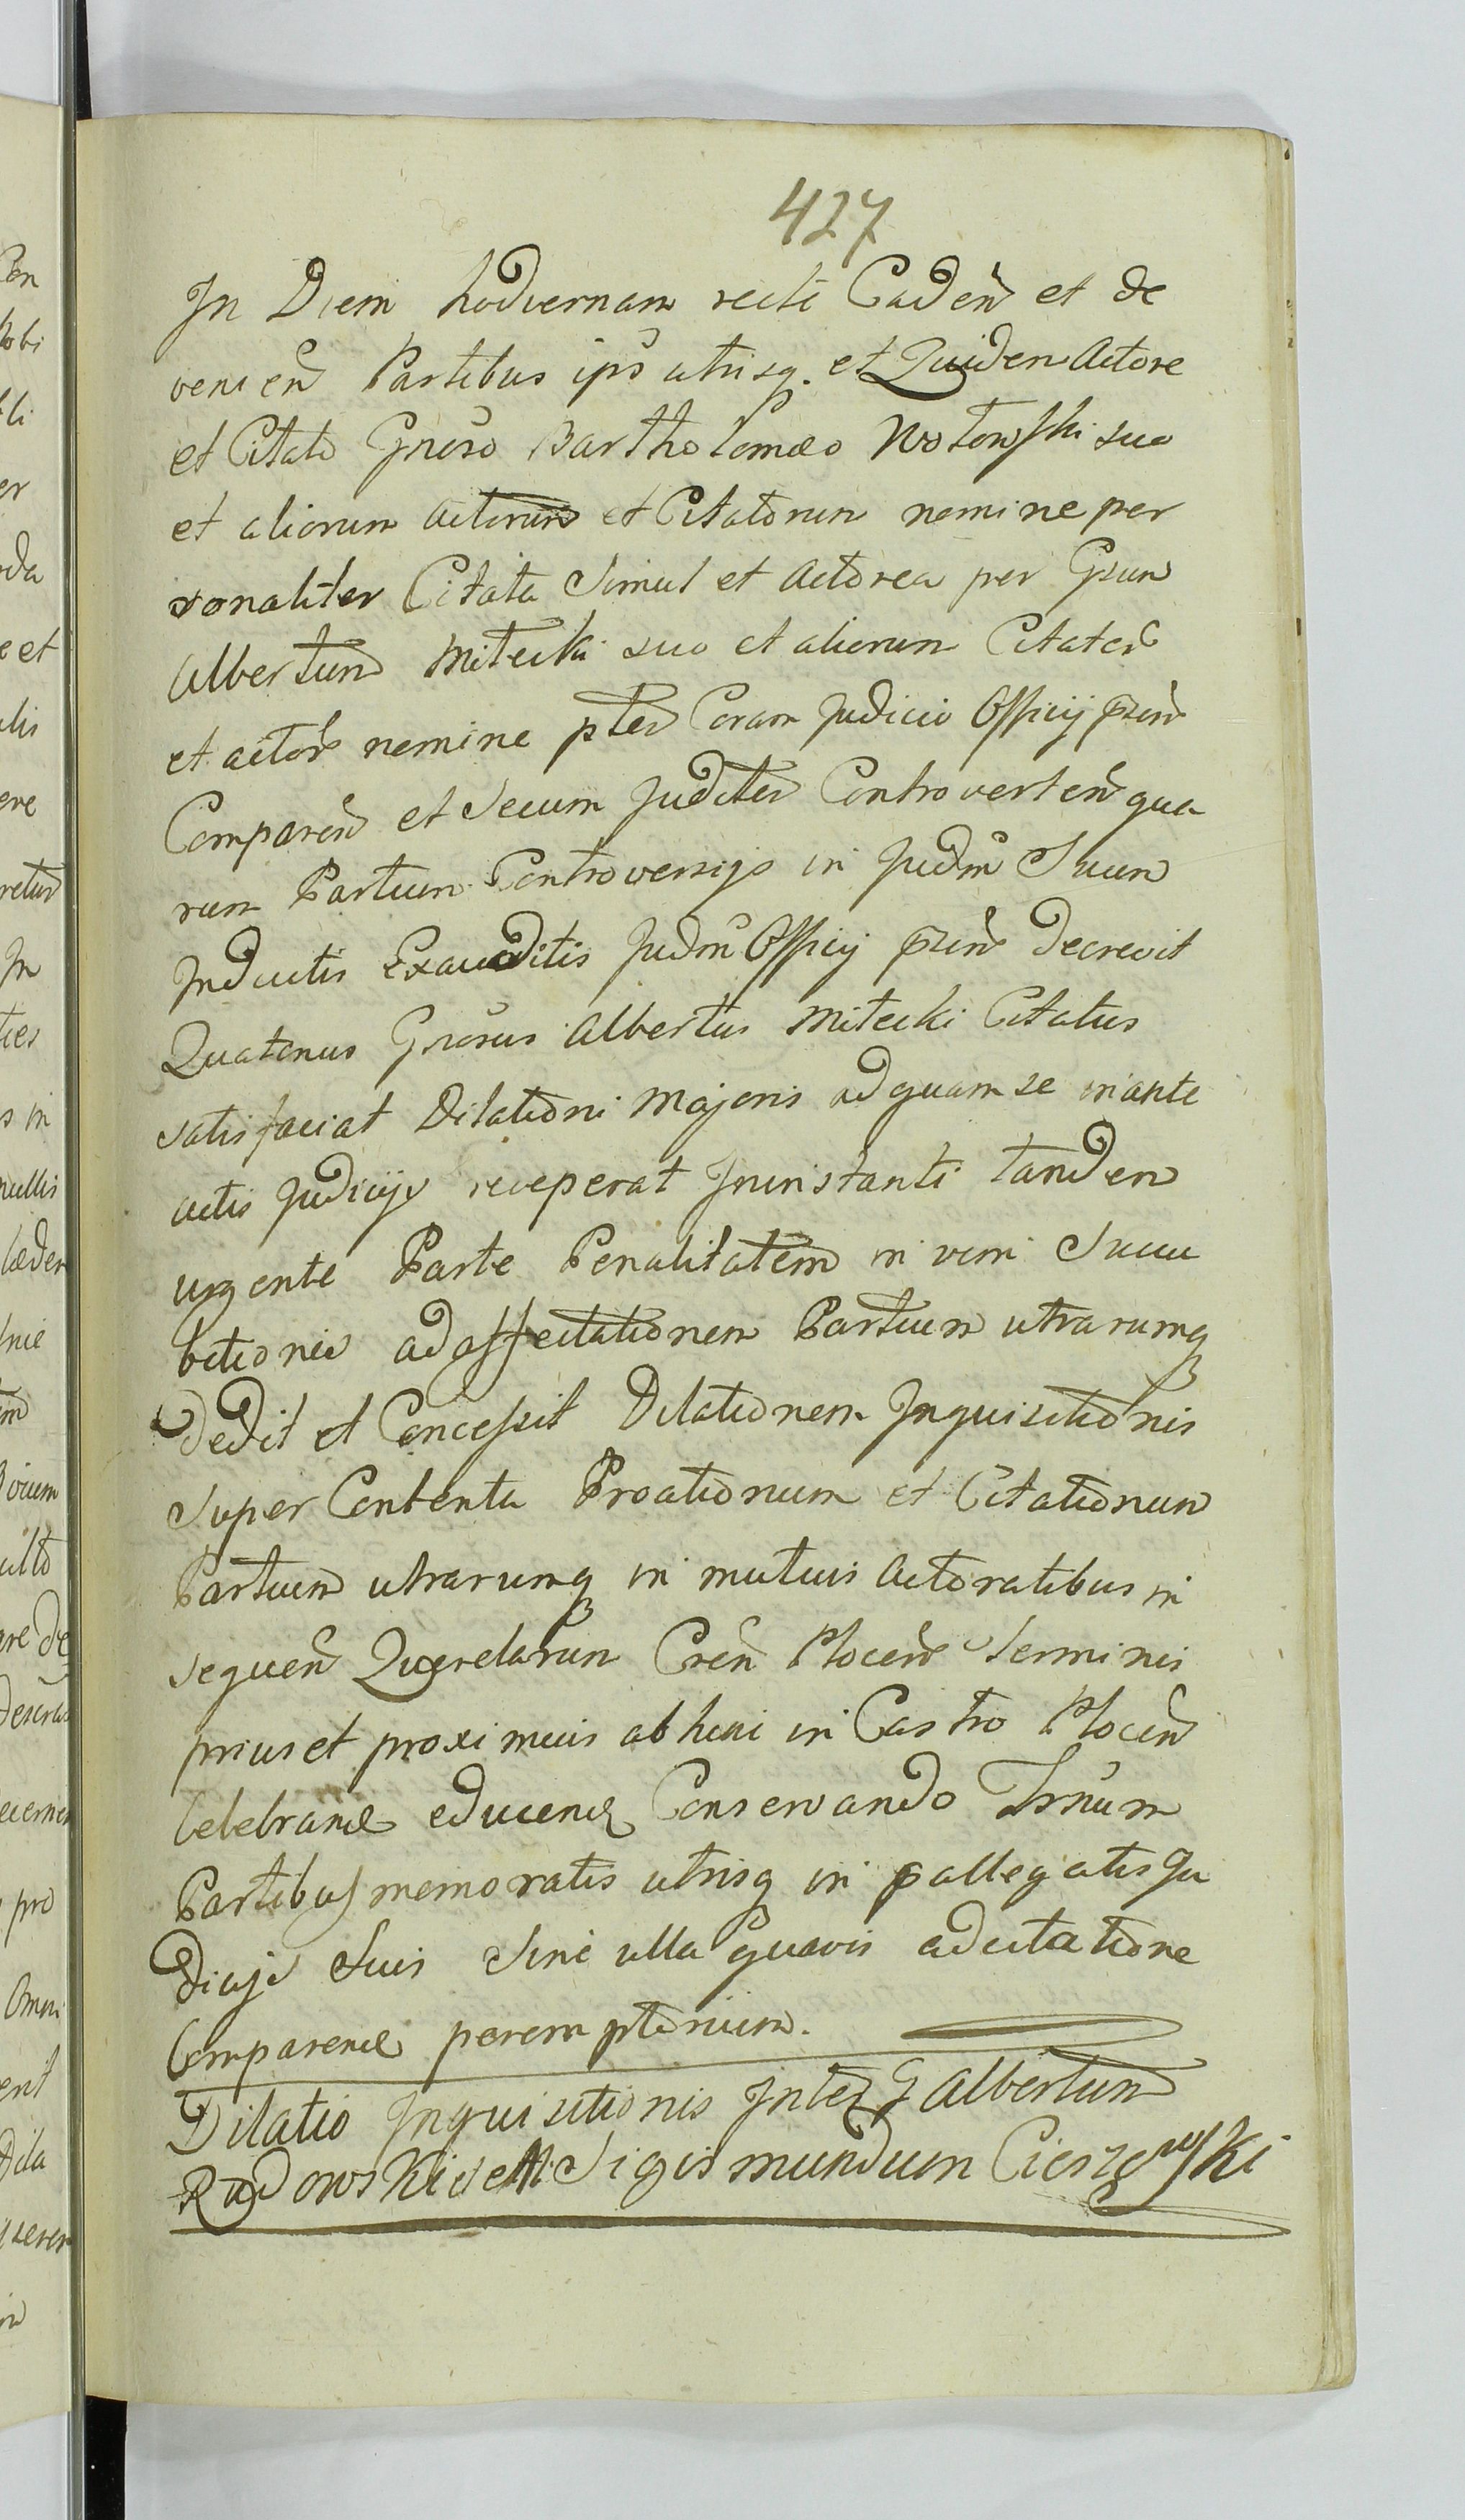 427
In Diem hodiernam recte Caden et de
venien Partibus ips utrisq. et Quidem Actore
et Citato Gnoso Bartholomæo Wotowski suo
et aliorum Actorum et Citatorum nomine per
sonaliter Citata Simul et Actorea per Gsum
Albertum Mitecki suo et aliorum Citator
et actor nomine pter Coram Judicio Officij prin
Comparen et Secum Juditer Controverten qua
rum Partium Controversijs in Judm Suum
Inductis Exauditis Judm Officij prin decrevit
Quatenus Gnosus Albertus Mitecki Citatus
satisfaciat Dilationi Majoris ad quam se in ante
actis Judicijs receperat Ininstanti tandem
urgente Parte Penalitatem in vim Succu
bitionis ad affectationem Partium utrarumq
dedit et Concessit Dilationem Inquisitionis
Super Contenta Proationum et Citationum
Partium utrarumq in mutuis Actoratibus in
sequen Querelarum Cren Plocen Terminis
prius et proximius ab huni in Castro Plocen
Celebrand educend Conservando Trnum
Partibus memoratis utrisq in pallegatis Ju
dicijs Suis Sine ulla quavis adcitatione
Comparend peremptorium.
Dilatio Inquisitionis Inter G Albertum
Radowski et M. Sigismundum Cieszewski